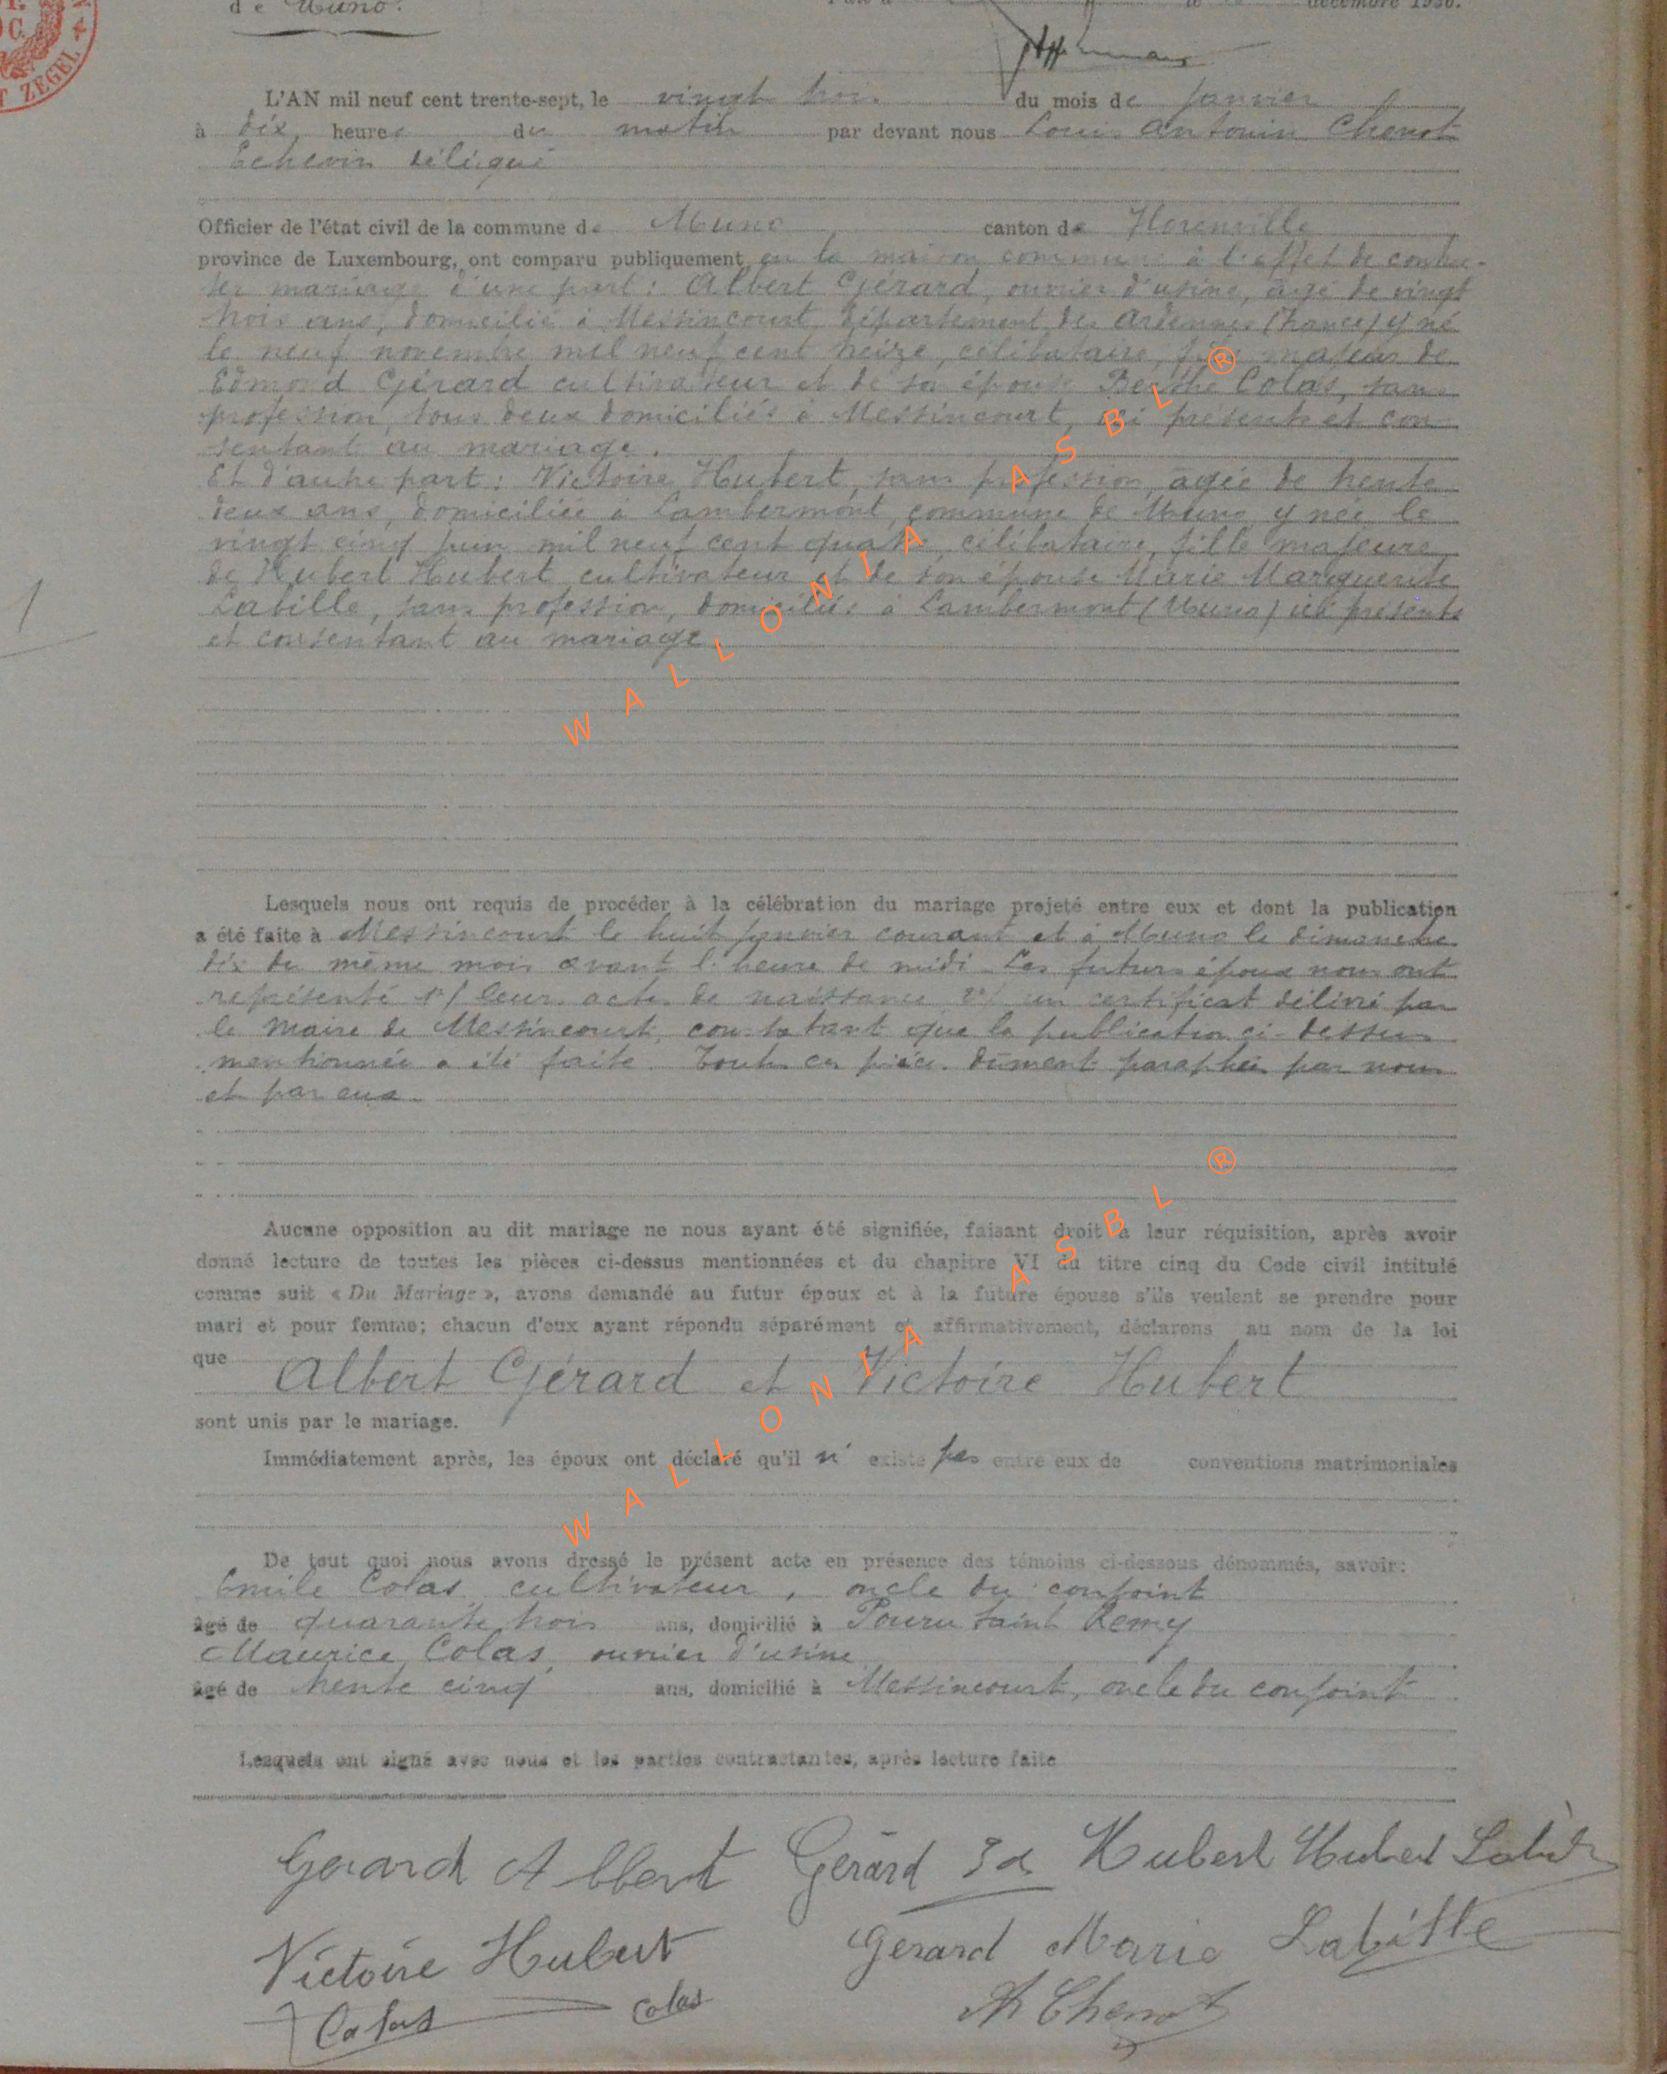 de Muno.
décembre 1936.
T ZEGEL
L'AN mil neuf cent trente-sept, le vingt trois du mois de janvier
à dix heures du matin par devant nous Louis Antonin Chenot
Echevin délégué
Officier de l'état civil de la commune de Muno canton de Florenville
province de Luxembourg, ont comparu publiquement en la maison commune à l'effet de contrac-
ter mariage d'une part : Albert Gérard, ouvrier d'usine, âgé de vingt
trois ans, domicilié à Messincourt, département des Ardennes (France) y né
le neuf novembre mil neuf cent treize, célibataire, fils majeur de
Edmond Gérard cultivateur et de son épouse Berthe Colas, sans
profession, tous deux domiciliés à Messincourt, ici présents et con
sentant au mariage.
Et d'autre part : Victoire Hubert, sans profession, âgée de trente
deux ans, domiciliée à Lambermont, commune de Muno y née le
vingt cinq juin mil neuf cent quatre, célibataire, fille majeure
de Hubert Hubert cultivateur et de son épouse Marie Marguerite
Labille, sans profession, domiciliés à Lambermont (Muno) ici présents
et consentant au mariage.
WALLONIA ASBL ®
Lesquels nous ont requis de procéder à la célébration du mariage projeté entre eux et dont la publication
a été faite à Messincourt le huit janvier courant et à Muno le dimanche
dix du même mois avant l'heure de midi. Les futurs époux nous ont
représenté 1°/ leur acte de naissance 2°/ un certificat délivré par
le Maire de Messincourt, constatant que la publication ci-dessus
mentionnée a été faite. Toutes ces pièces dûment paraphées par nous
et par eux.
Aucune opposition au dit mariage ne nous ayant été signifiée, faisant droit à leur réquisition, après avoir
donné lecture de toutes les pièces ci-dessus mentionnées et du chapitre VI du titre cinq du Code civil intitulé
comme suit « Du Mariage », avons demandé au futur époux et à la future épouse s'ils veulent se prendre pour
mari et pour femme; chacun d'eux ayant répondu séparément et affirmativement, déclarons au nom de la loi
que Albert Gérard et Victoire Hubert
sont unis par le mariage.
Immédiatement après, les époux ont déclaré qu'il n' existe pas entre eux de conventions matrimoniales
WALLONIA ASBL ®
De tout quoi nous avons dressé le présent acte en présence des témoins ci-dessous dénommés, savoir:
Emile Colas, cultivateur, oncle du conjoint
âgé de quarante trois ans, domicilié à Pouru Saint Remy
Maurice Colas, ouvrier d'usine
âgé de trente cinq ans, domicilié à Messincourt, oncle du conjoint
Lesquels ont signé avec nous et les parties contractantes, après lecture faite
Gerard Albert Gérard Ed Hubert Hubert Labille
Victoire Hubert Gerard Marie Labille
Colas Colas A Chenot